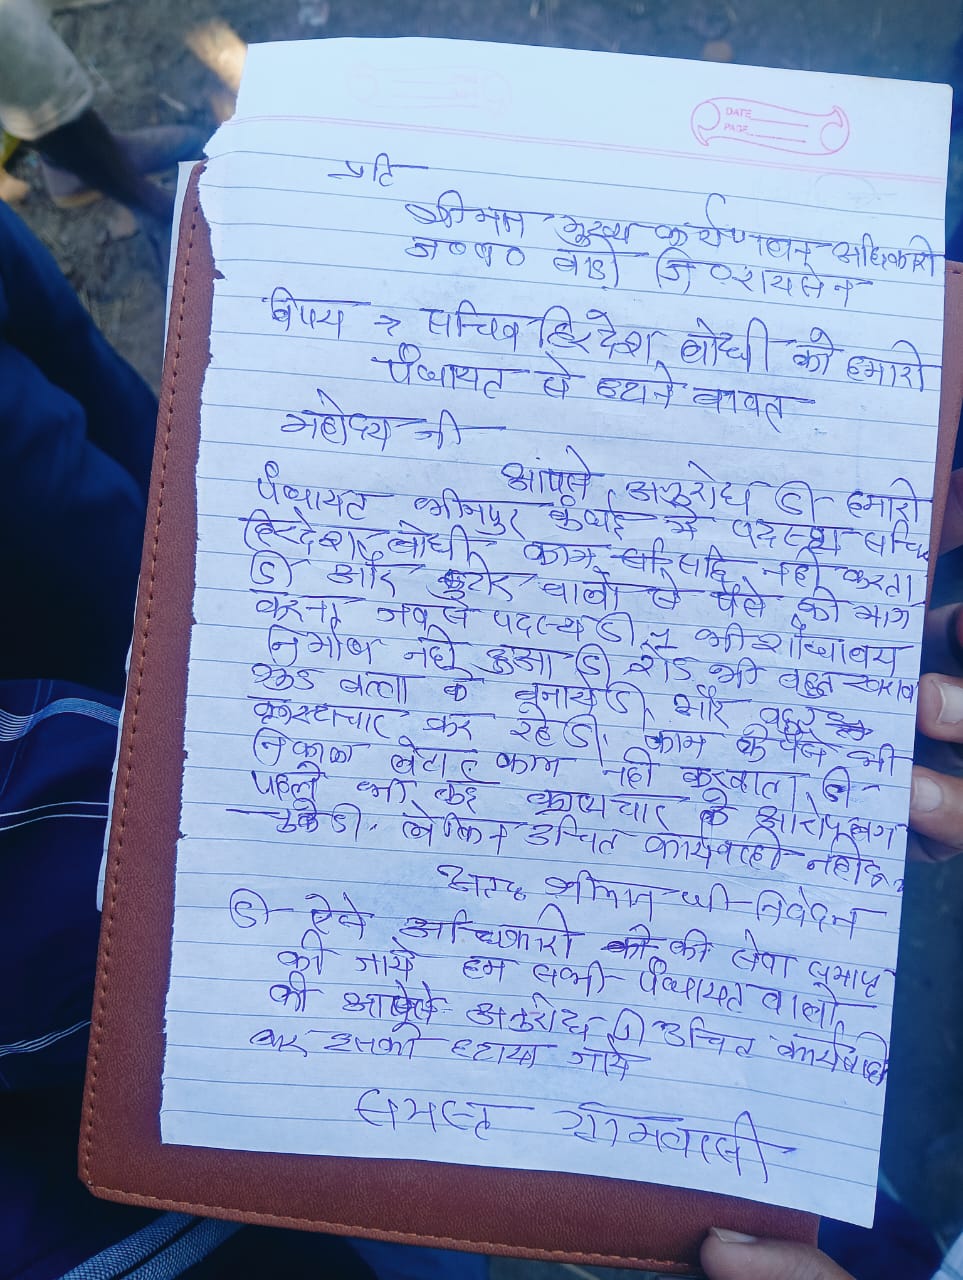 DATE
PAGE
प्रति
श्रीमान मुख्य कार्यपालन अधिकारी
ज०प० बाड़ी जि०रायसेन
विषय सचिव हिरदेश लोधी को हमारी
पंचायत से हटाने बावत
महोदय जी
आपसे अनुरोध है हमारी
पंचायत भीमपुर में पदस्थ सचिव
हिरदेश लोधी काम सही नही करता
है और कुटीर वालो से पैसे की मांग
करता जबसे पदस्थ है भी शौचालय
निर्माण नही हुआ है रोड भी बहुत खराब
के बनाये है और
भ्रस्टाचार कर रहे है। काम के पैसे भी
निकाल लेता है काम नही करवाता है
पहले भी कई भ्रष्टाचार के आरोप लग
चुके है. लेकिन उचित कार्यवाही नही
अतः श्रीमान जी निवेदन
है ऐसे अधिकारी की सेवा समाप्त
की जाये हम सभी पंचायत वालो
की आपसे अनुरोध है उचित कार्यवाही
कर इसको हटाया जाये
समस्त ग्रामवासी